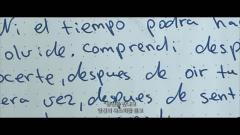 Ni el tiempo podra ha
olvide. Comprendi desp
ocerte, despues de oir tu
era vez, despues de sent